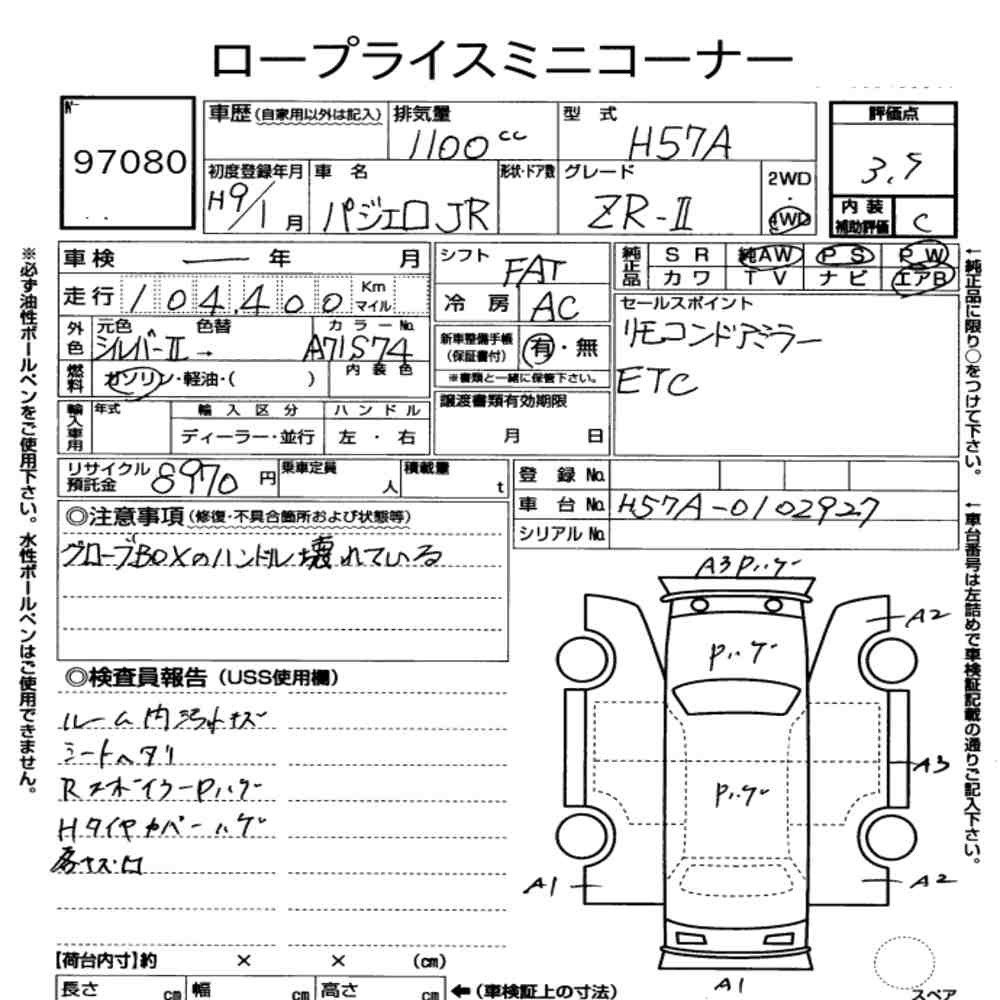 ロープライスミニコーナー
No.
97080
車歴(自家用以外は記入)
排気量
1100cc
型式
H57A
評価点
3.5
初度登録年月
H9/1月
車名
パジェロJR
形状・ドア数
グレード
ZR-Ⅱ
2WD
・
4WD
内装
補助評価
C
※必ず油性ボールペンをご使用下さい。水性ボールペンはご使用できません。
車検 ― 年 月
走行 104,400 Km マイル
外色
元色
シルバーⅡ→
色替
カラーNo.
A71S74
燃料
ガソリン・軽油・( )
内装色
輸入車用
年式
輸入区分
ディーラー・並行
ハンドル
左・右
シフト
FAT
冷房
AC
新車整備手帳
(保証書付)
有・無
※書類と一緒に保管下さい。
譲渡書類有効期限
月 日
純正品
SR 純AW PS PW
カワ TV ナビ エアB
セールスポイント
リモコンドアミラー
ETC
←純正品に限り○をつけて下さい。
リサイクル預託金
8970円
乗車定員
人
積載量
t
登録No.
車台No.
H57A-0102927
シリアルNo.
←車台番号は左詰めで車検証記載の通りご記入下さい。
◎注意事項(修復・不具合箇所および状態等)
グローブBOXのハンドル壊れている
◎検査員報告(USS使用欄)
ルーム内汚れキズ
シートヘタリ
RスポイラーPハゲ
Hタイヤカバーハゲ
A3 Pハゲ
A2
Pハゲ
A3
Pハゲ
A1
A2
A1
【荷台内寸】約 × × (cm)
長さ cm 幅 cm 高さ cm ←(車検証上の寸法)
スペア